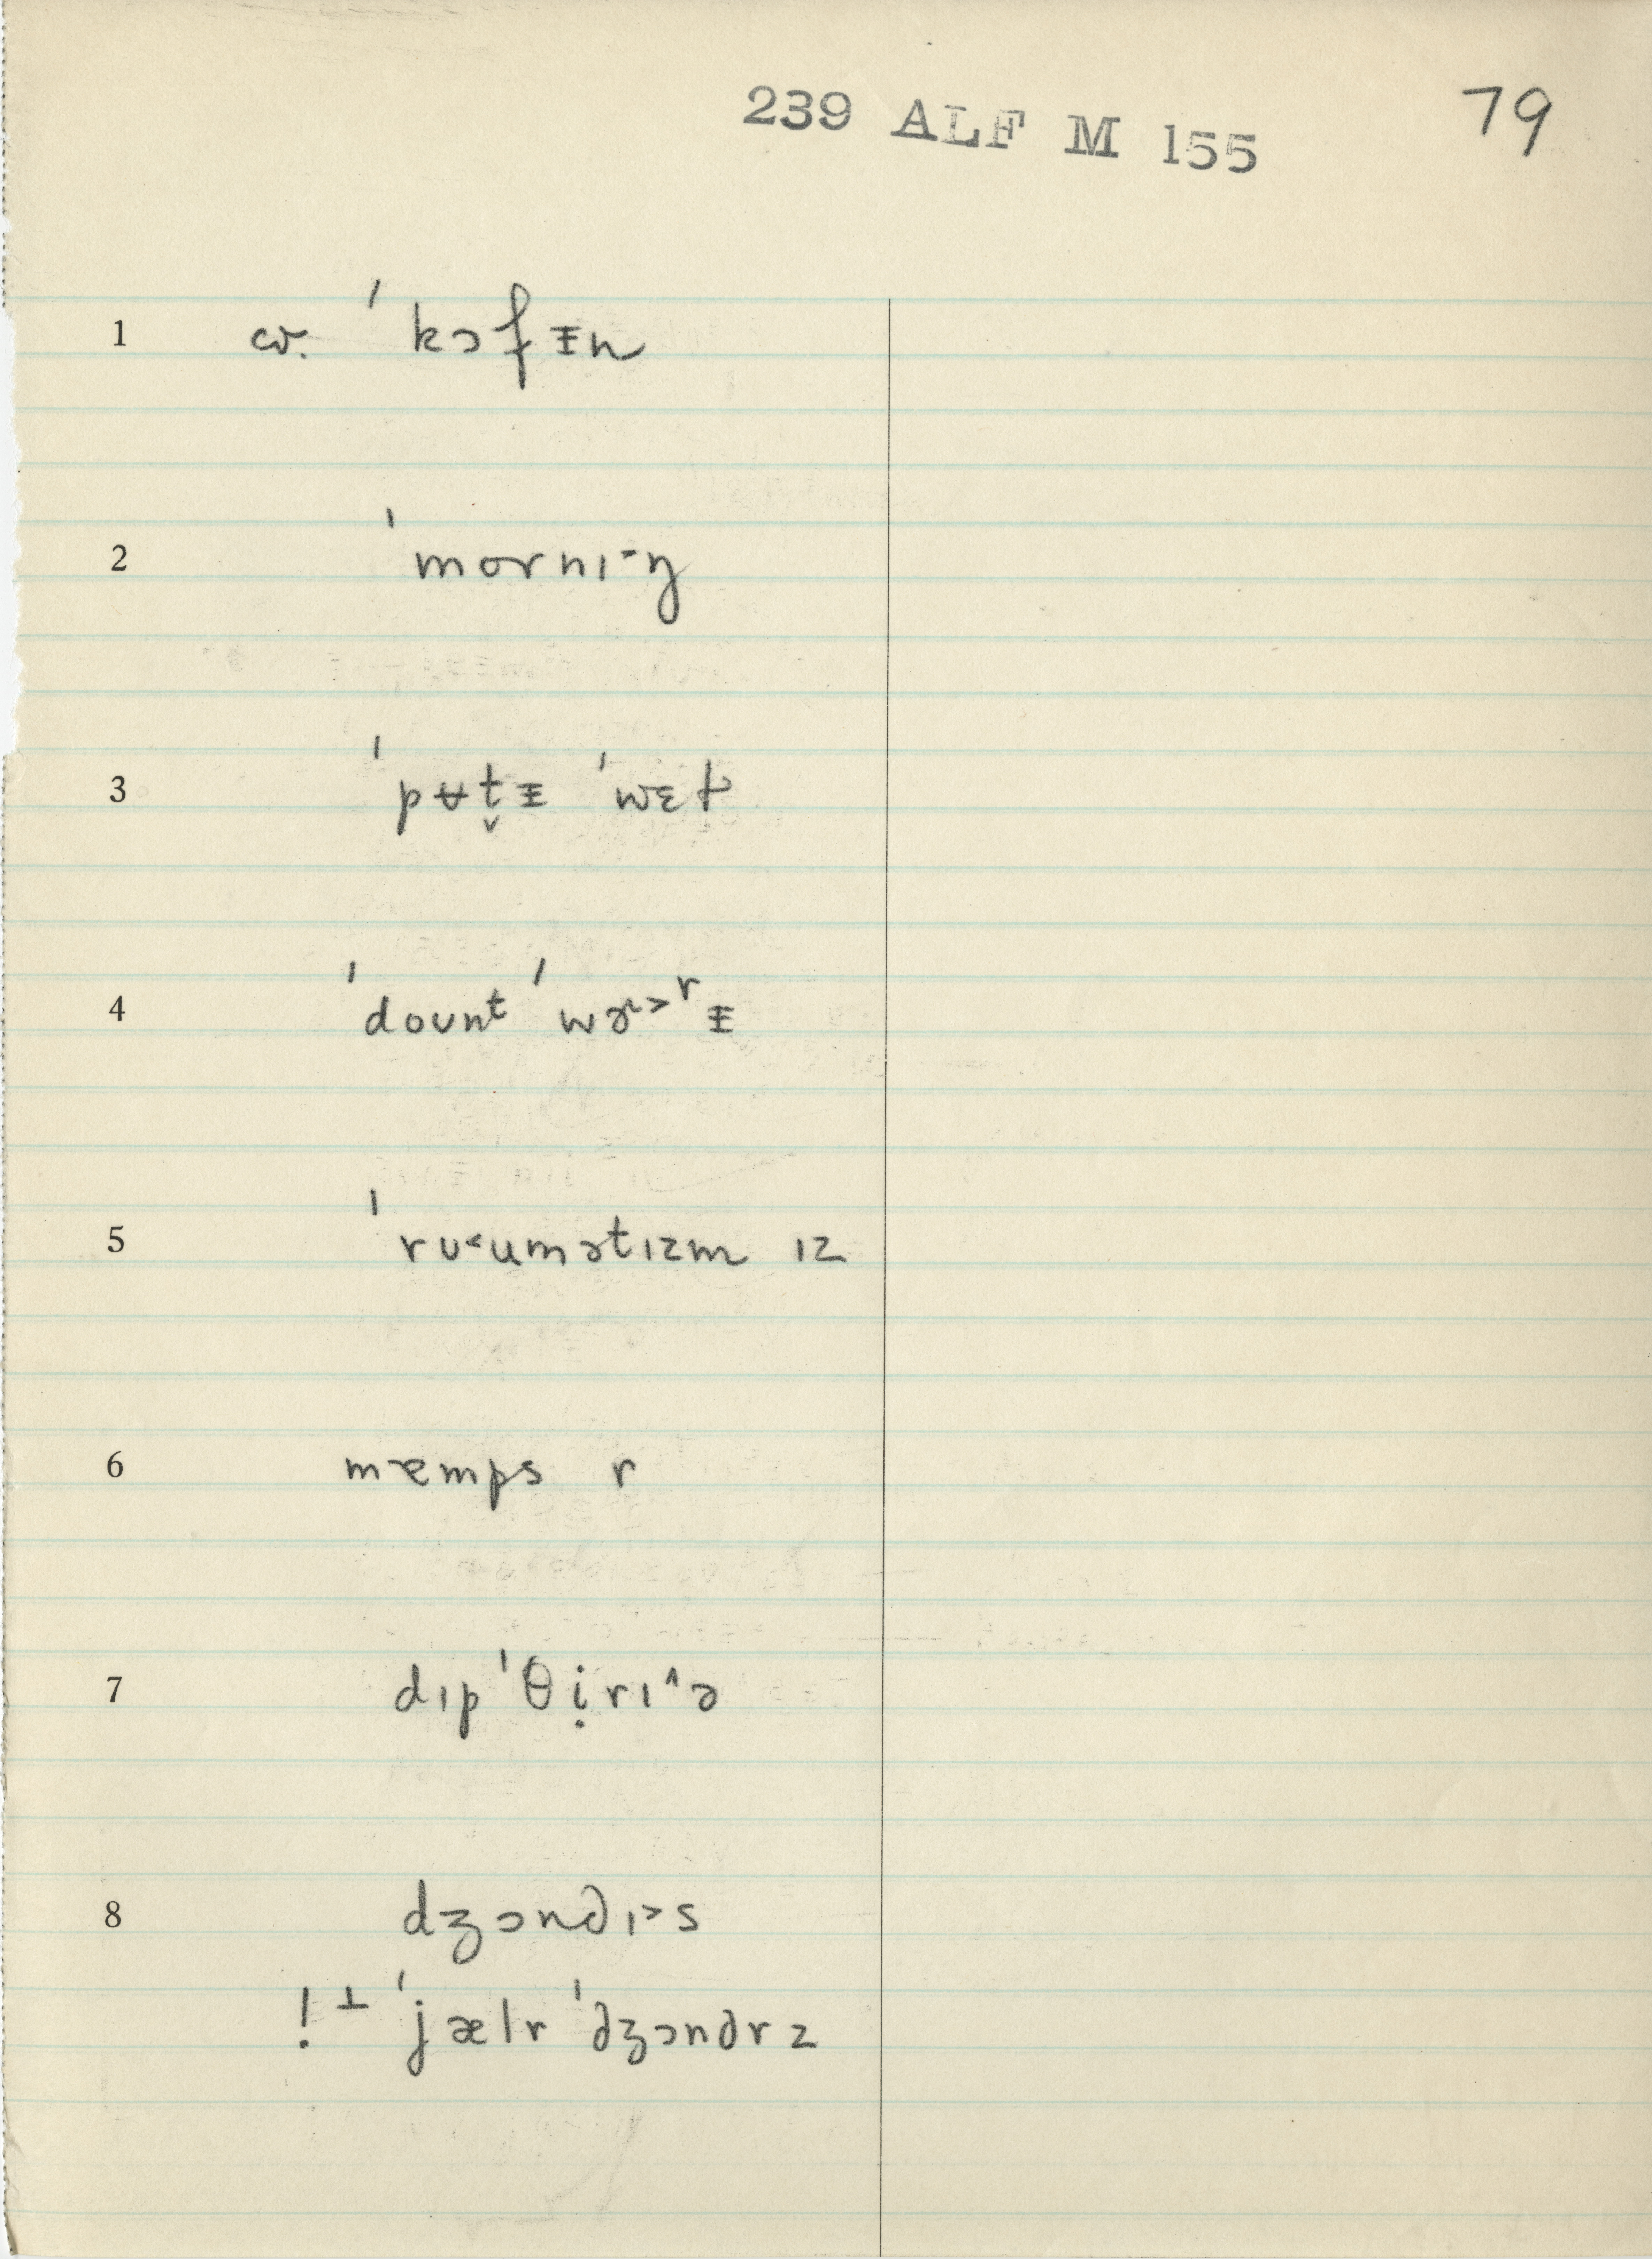 239 ALF M 155 79
1 cv. ˈkɔfᵻn
2 ˈmornɪ-ŋ
3 ˈpʉt̬ᵻ ˈwɛt
4 ˈdount ˈwɚ˃rᵻ
5 ˈrʊ˂umətɪzm ɪz
6 mæmps r
7 dɪpˈθịrɪ˄ə
8 dʒɔndɪ˃s
! ⊥ ˈjælr ˈdʒɔndrz